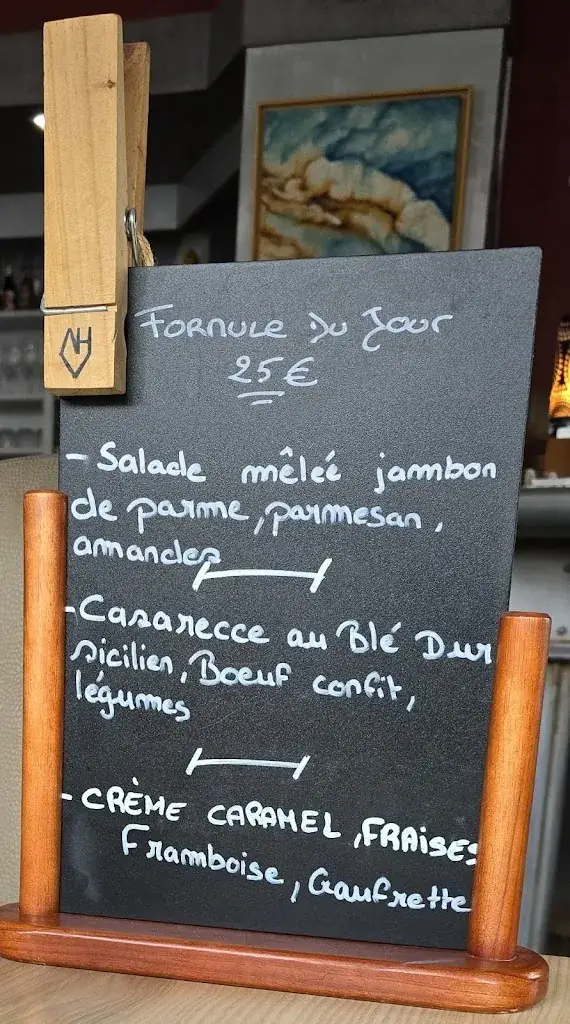 FORMULE Du Jour
25€
- Salade mêleé jambon
de parme, parmesan,
amandes
- Casarecce au Blé Dur
sicilien, Boeuf confit,
légumes
- CRÈME CARAMEL, FRAISES
Framboise, Gaufrette
NH